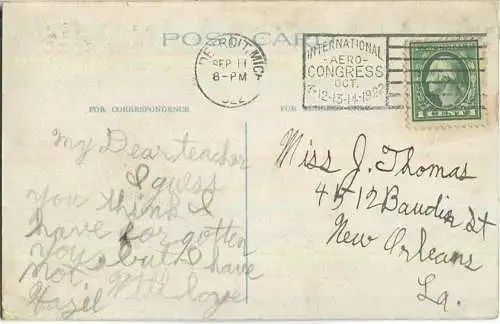 POST CARD
DETROIT, MICH.
SEP 11
8-PM
1922
INTERNATIONAL
-AERO-
CONGRESS
OCT.
12-13-14-1922
1 CENT 1
FOR CORRESPONDENCE
FOR
My Dear teacher
I guess
you think I
have for gotten
you but I have
not. With love
Hazel
Miss J. Thomas
4512 Baudin St
New Orleans
La.